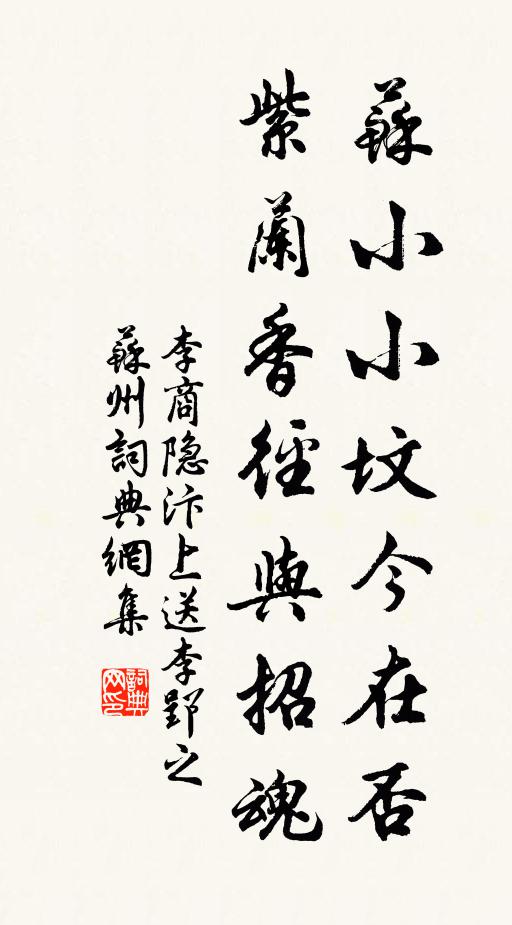 蘇小小墳今在否
紫蘭香徑與招魂
李商隐汴上送李郢之
蘇州詞典網集
詞典网印